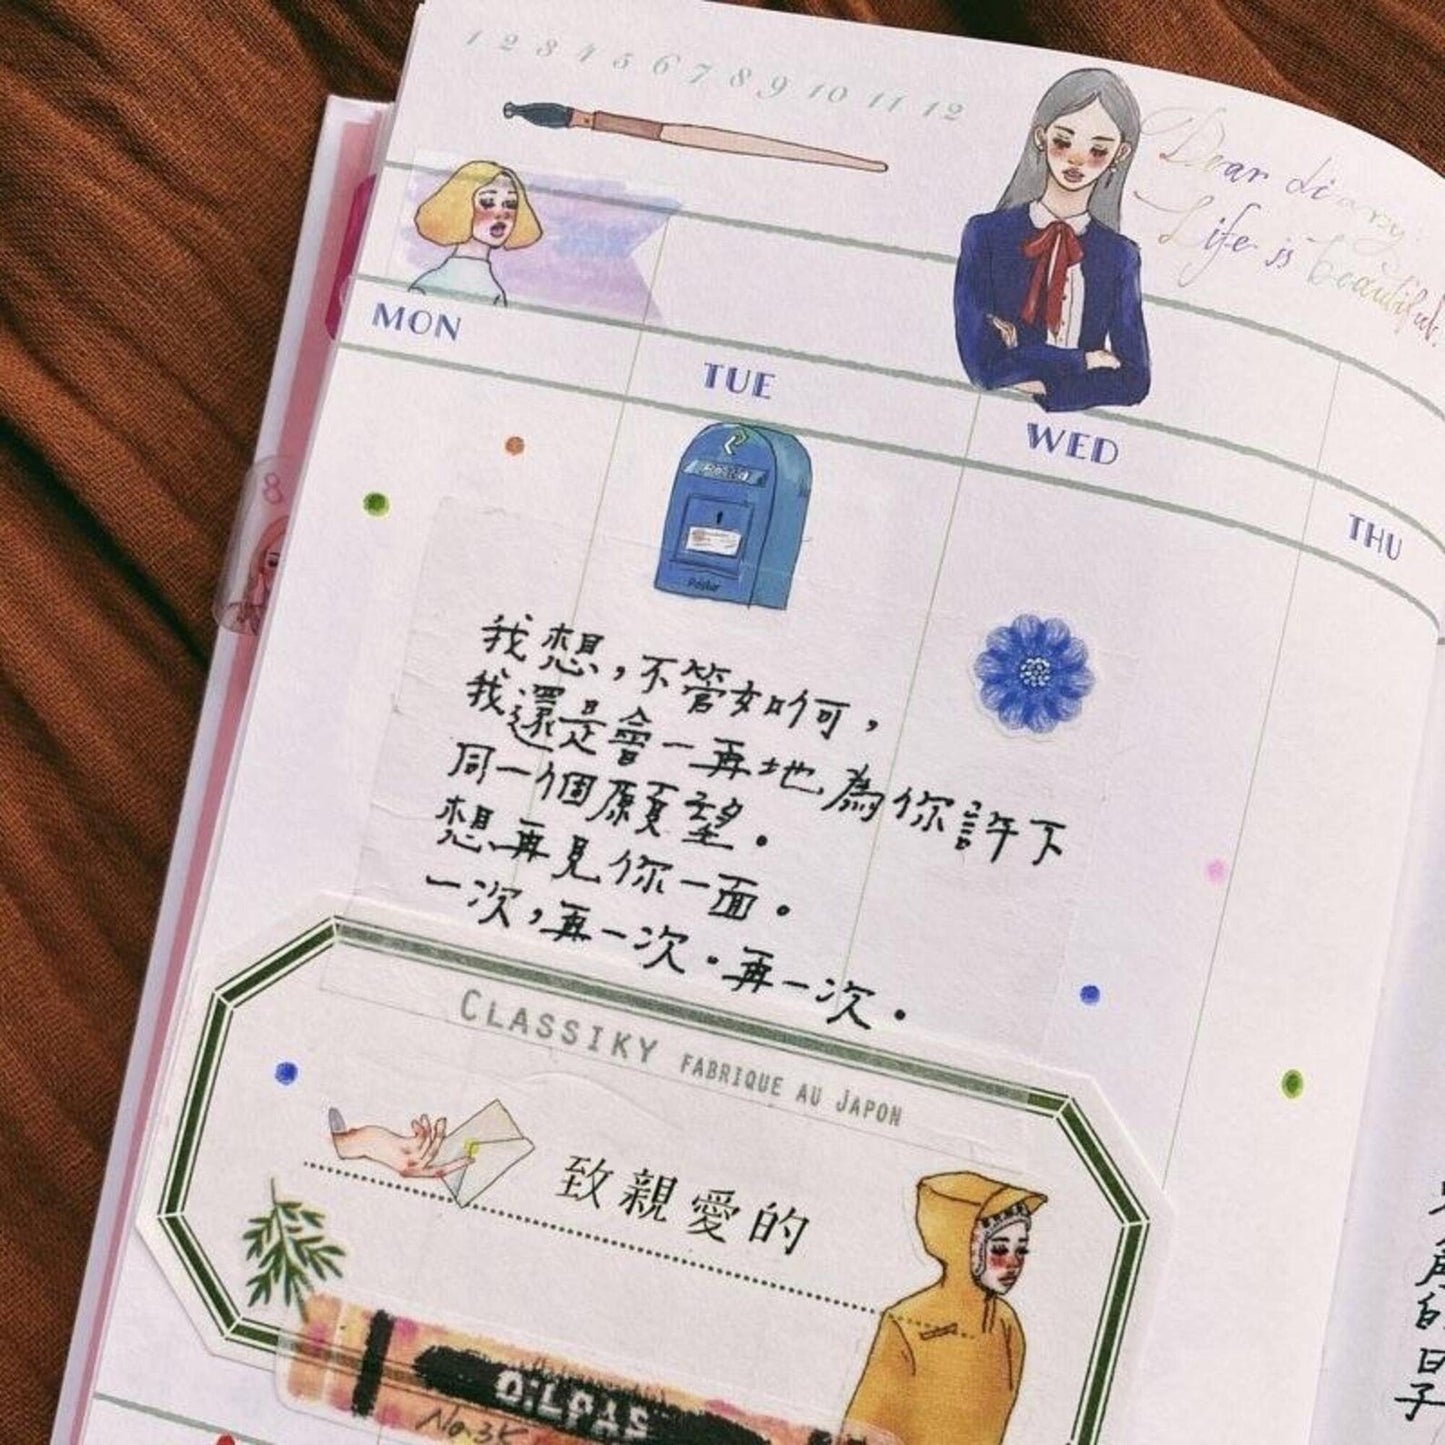 1 2 3 4 5 6 7 8 9 10 11 12
Dear diary:
Life is beautiful.
MON
TUE
WED
THU
8
Posten
我想,不管如何,
我還是會一再地為你許下
同一個願望。
想再見你一面。
一次,再一次。再一次。
CLASSIKY FABRIQUE AU JAPON
致親愛的
No.35
的日子